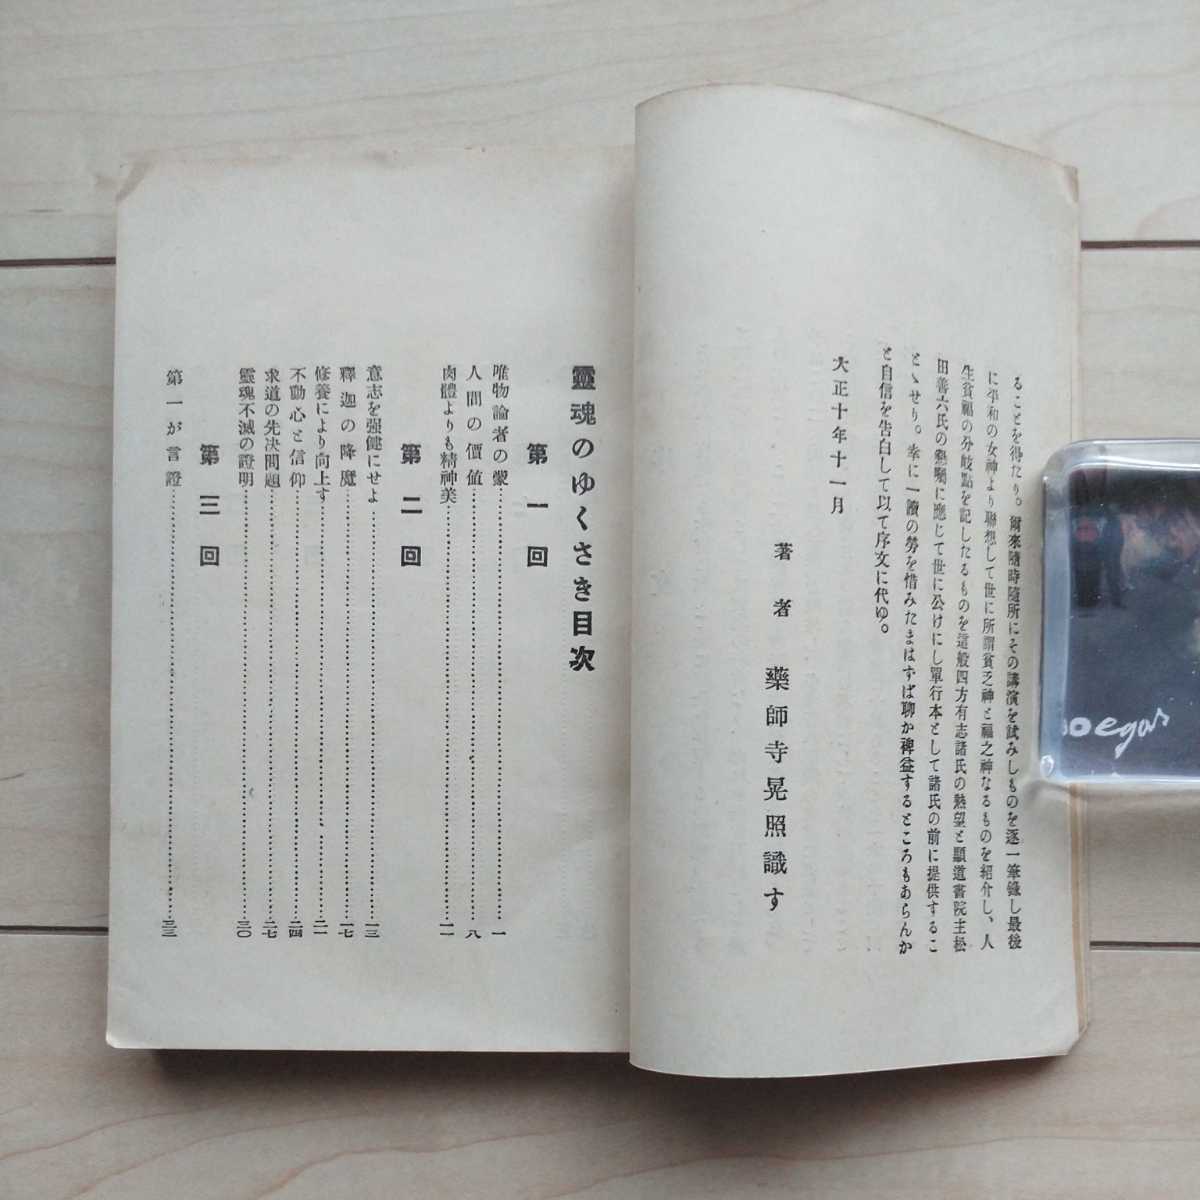 ることを得たり。爾來隨時隨所にその講演を試みしものを逐一筆錄し最後
に平和の女神より聯想して世に所謂貧乏神と福之神なるものを紹介し、人
生貧福の分岐點を記したるものを這般四方有志諸氏の熱望と顯道書院主松
田善六氏の懇囑に應じて世に公けにし單行本として諸氏の前に提供するこ
とゝせり。幸に一讀の勞を惜みたまはずば聊か裨益するところもあらんか
と自信を告白して以て序文に代ゆ。
大正十年十一月
著者 藥師寺晃照識す
靈魂のゆくさき目次
第一回
唯物論者の蒙……一
人間の價値……八
肉體よりも精神美……一一
第二回
意志を强健にせよ……一三
釋迦の降魔……一七
修養により向上す……二一
不動心と信仰……二四
求道の先决問題……二七
靈魂不滅の證明……三〇
第三回
第一が言證……三三
oegas